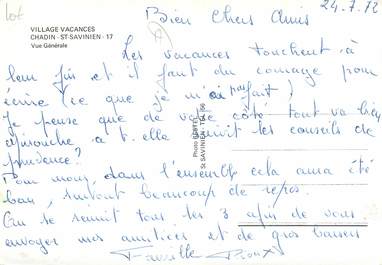 lot
24.7.72
Bien Chers Amis
VILLAGE VACANCES
CHADIN - ST-SAVINIEN - 17
Vue Générale
Les vacances touchent à
leur fin et il faut du courage pour
écrire (ce que je n'ai pas fait)
Je pense que de votre côté tout va bien
a t. elle suivit les conseils de
prudence?
Pour nous, dans l'ensemble cela aura été
bon, surtout beaucoup de repos.
On se réunit tous les 3 afin de vous
envoyer nos amitiés et de gros baisers
Famille
Photo
St SAVINIEN - Tél. 96